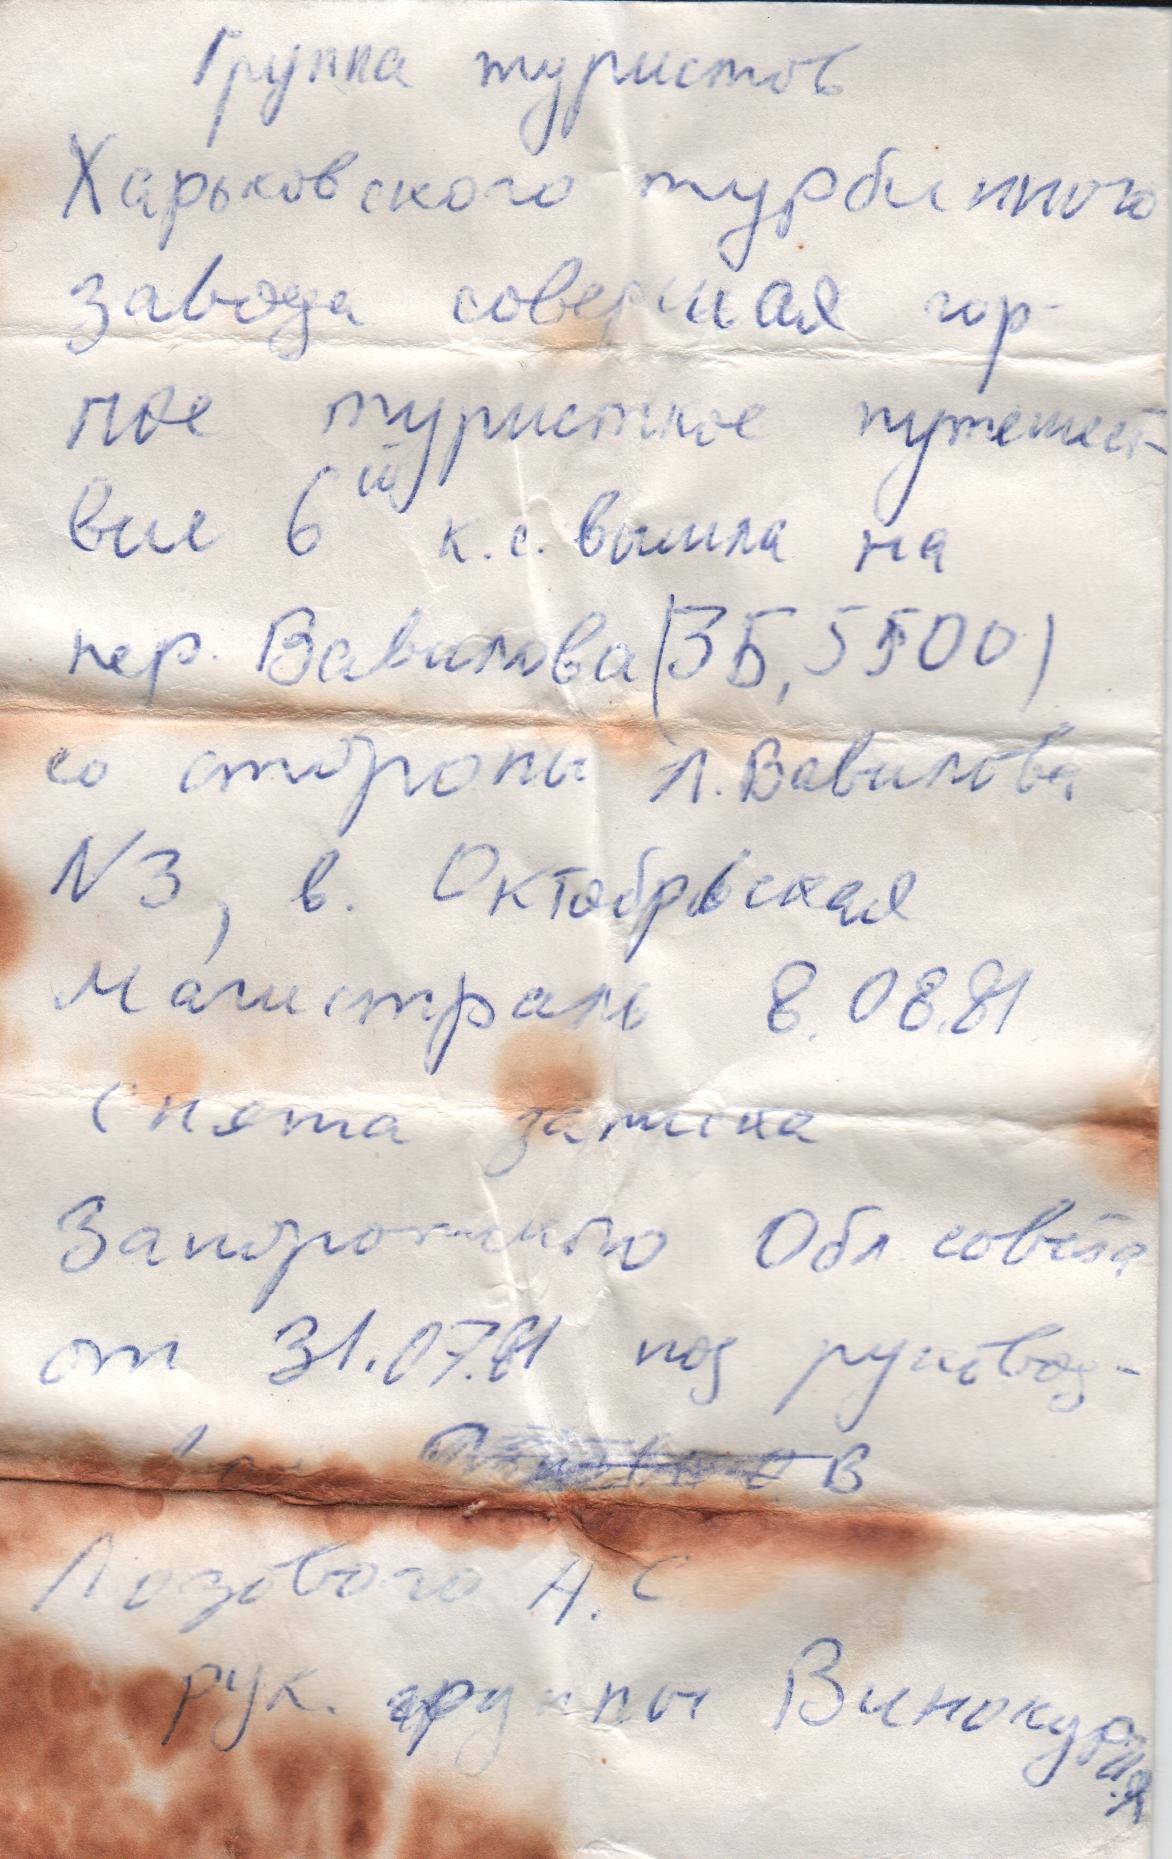 Группа туристов
Харьковского турбинного
завода совершая гор-
ное туристкое путешест-
вие 6ой к.с. вышла на
пер. Вавилова (3Б, 5500)
со стороны л. Вавилова
N3, в. Октобрьская
Магистраль 8.08.81
Снята записка
Запорожского Обл. совета
от 31.07.81 под руковод-
вом
Лозового А.С
рук. группы Винокур И.Я